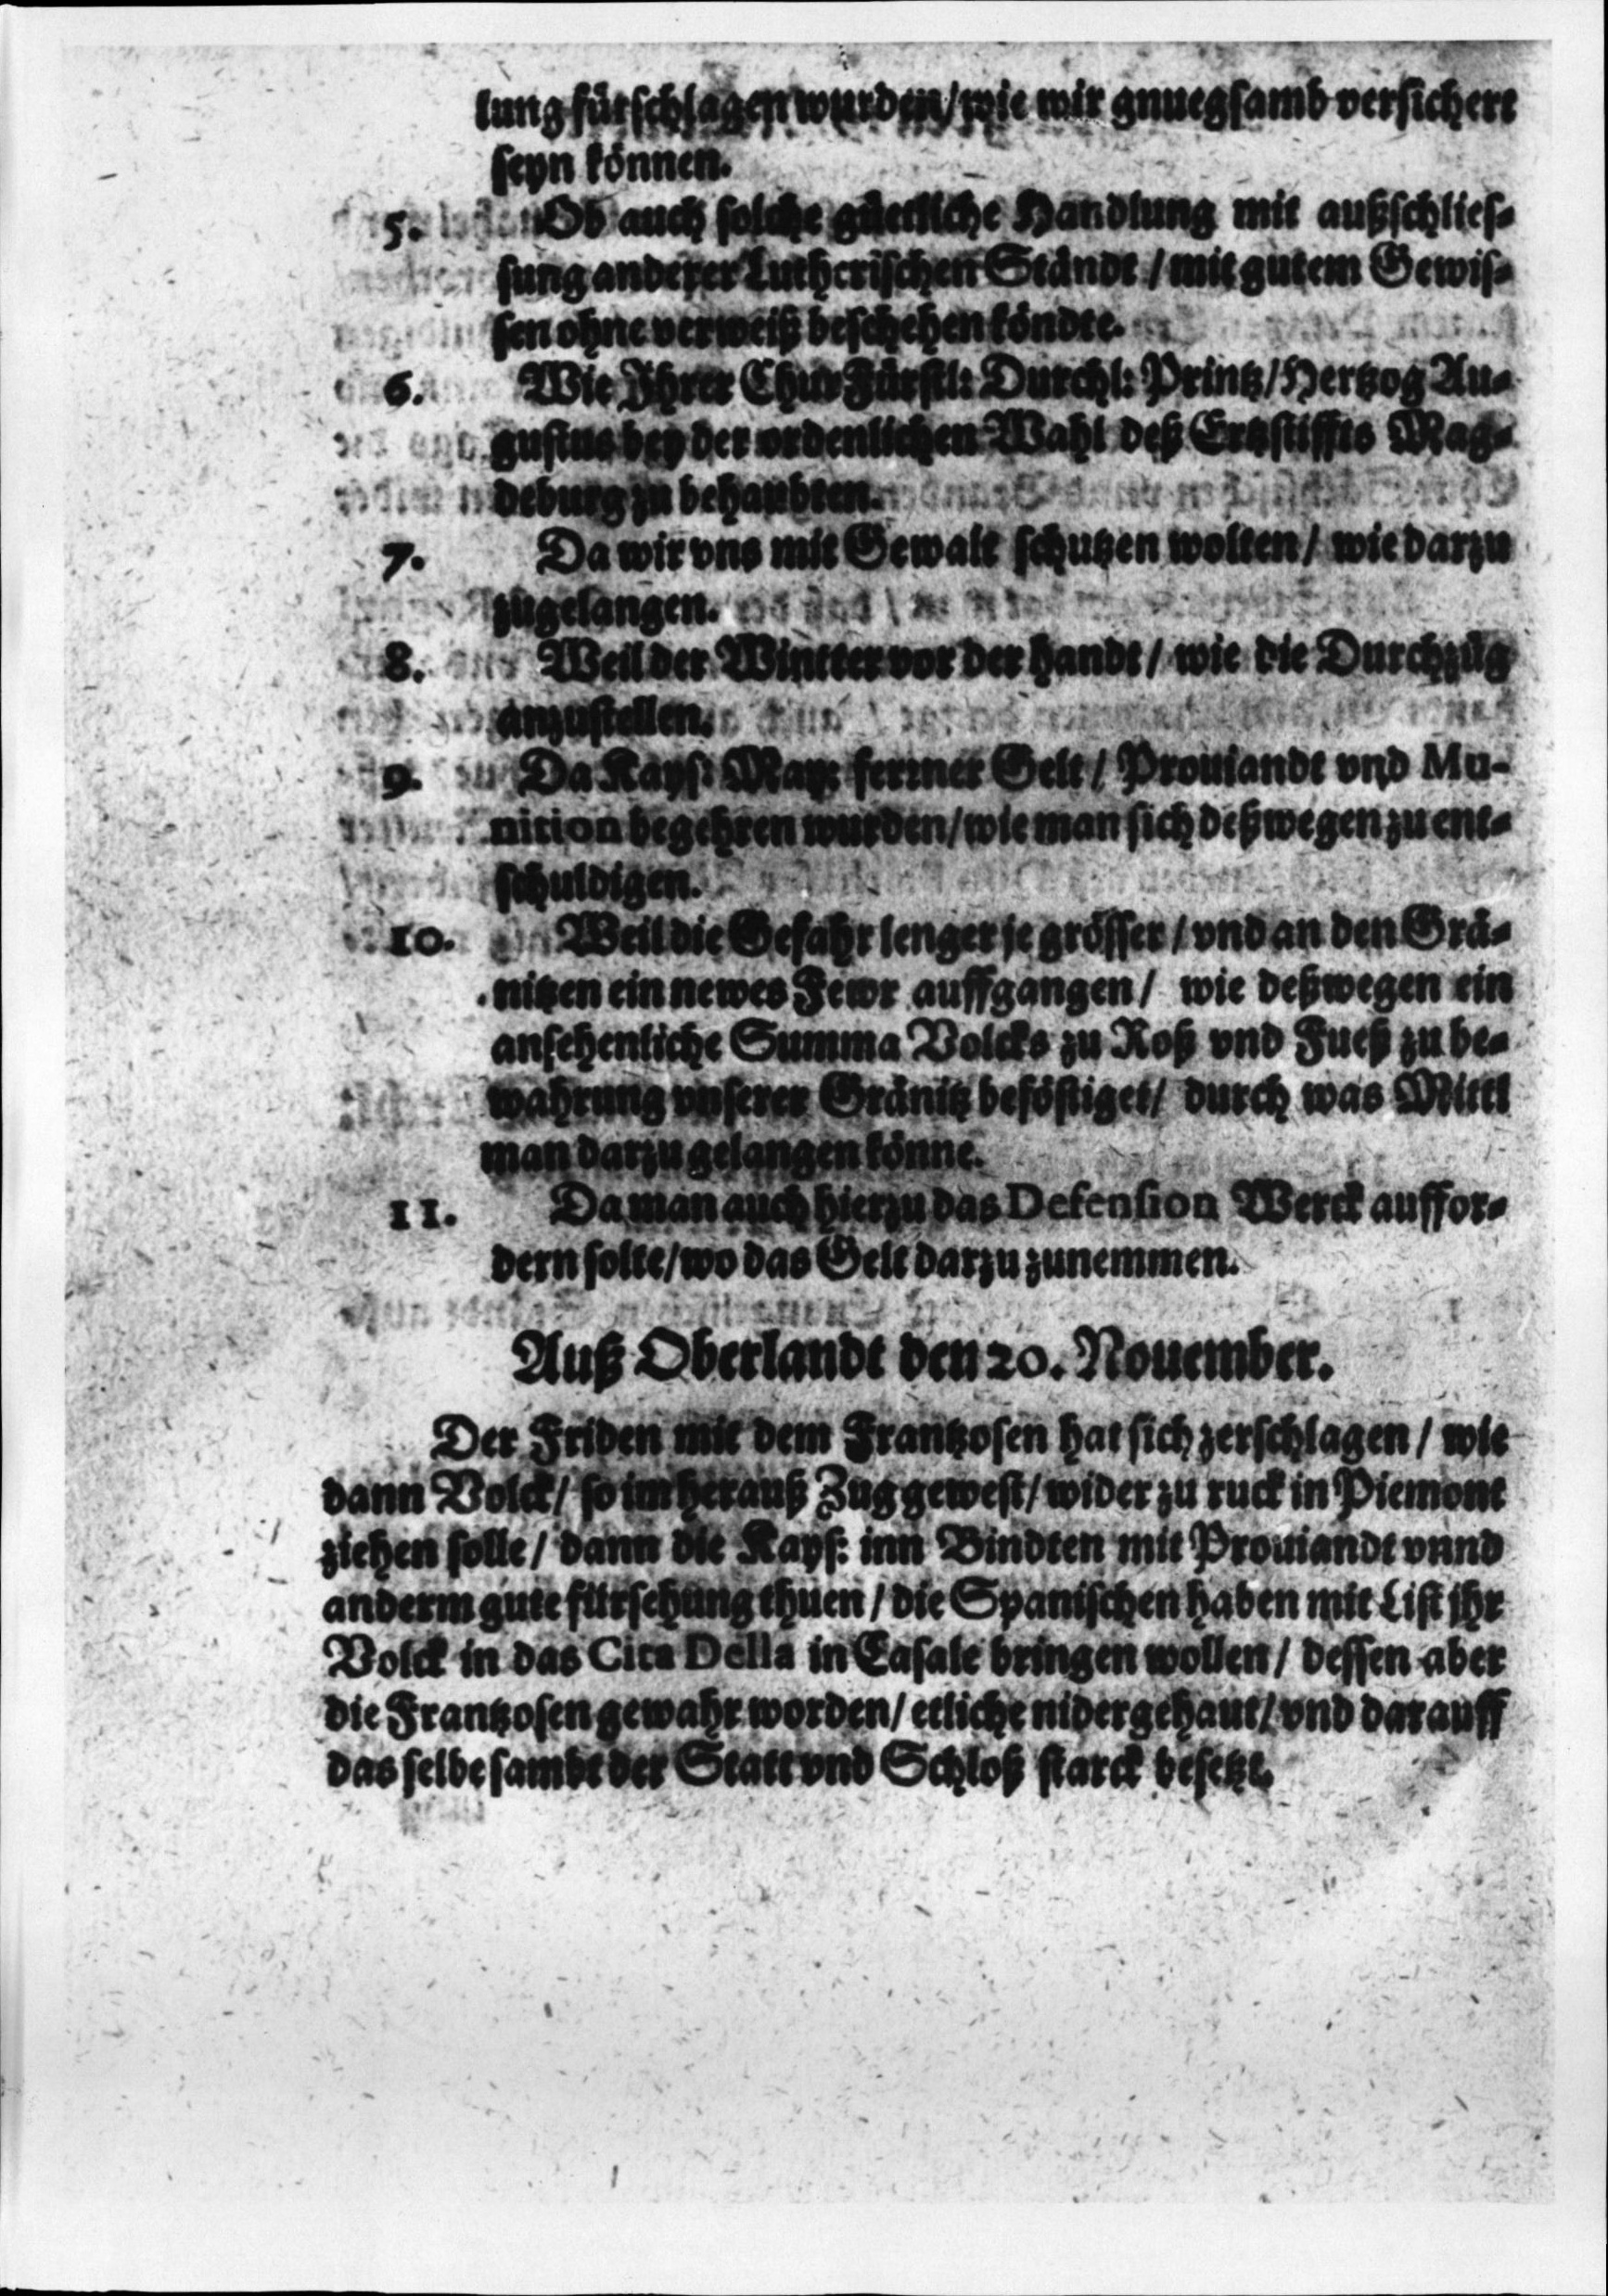 lung fürschlagen wurden/ wie wir gnuegsamb versichert
seyn können.
5. Ob auch solche güetliche Handlung mit außschlies-
sung anderer Lutherischen Ständt / mit gutem Gewis-
sen ohne verweiß beschehen köndte.
6. Wie Ihrer ChurFürstl: Durchl: Printz/ Hertzog Au-
gustus bey der ordenlichen Wahl deß Ertzstiffts Mag-
deburg zu behaubten.
7. Da wir vns mit Gewalt schutzen wolten/ wie darzu
zugelangen.
8. Weil der Wintter vor der handt / wie die Durchzüg
anzustellen.
9. Da Kays: May: ferrner Gelt / Prouiandt vnd Mu-
nition begehren wurden/ wie man sich deßwegen zu ent-
schuldigen.
10. Weil die Gefahr lenger je grösser / vnd an den Grä-
nitzen ein newes Fewr auffgangen / wie deßwegen ein
ansehenliche Summa Volcks zu Roß vnd Fueß zu be-
wahrung vnserer Gränitz beföstiget/ durch was Mittl
man darzu gelangen könne.
11. Da man auch hierzu das Defension Werck auffor-
dern solte/ wo das Gelt darzu zunemmen.
Auß Oberlandt den 20. Nouember.
Der Friden mit dem Frantzosen hat sich zerschlagen / wie
dann Volck/ so im herauß Zug gewest/ wider zu ruck in Piemont
ziehen solle / dann die Kays: inn Bindten mit Prouiandt vnnd
anderm gute fürsehung thuen / die Spanischen haben mit List jhr
Volck in das Cita Della in Casale bringen wollen / dessen aber
die Frantzosen gewahr worden/ etliche nidergehaut/ vnd darauff
das selbe sambt der Statt vnd Schloß starck besetzt.